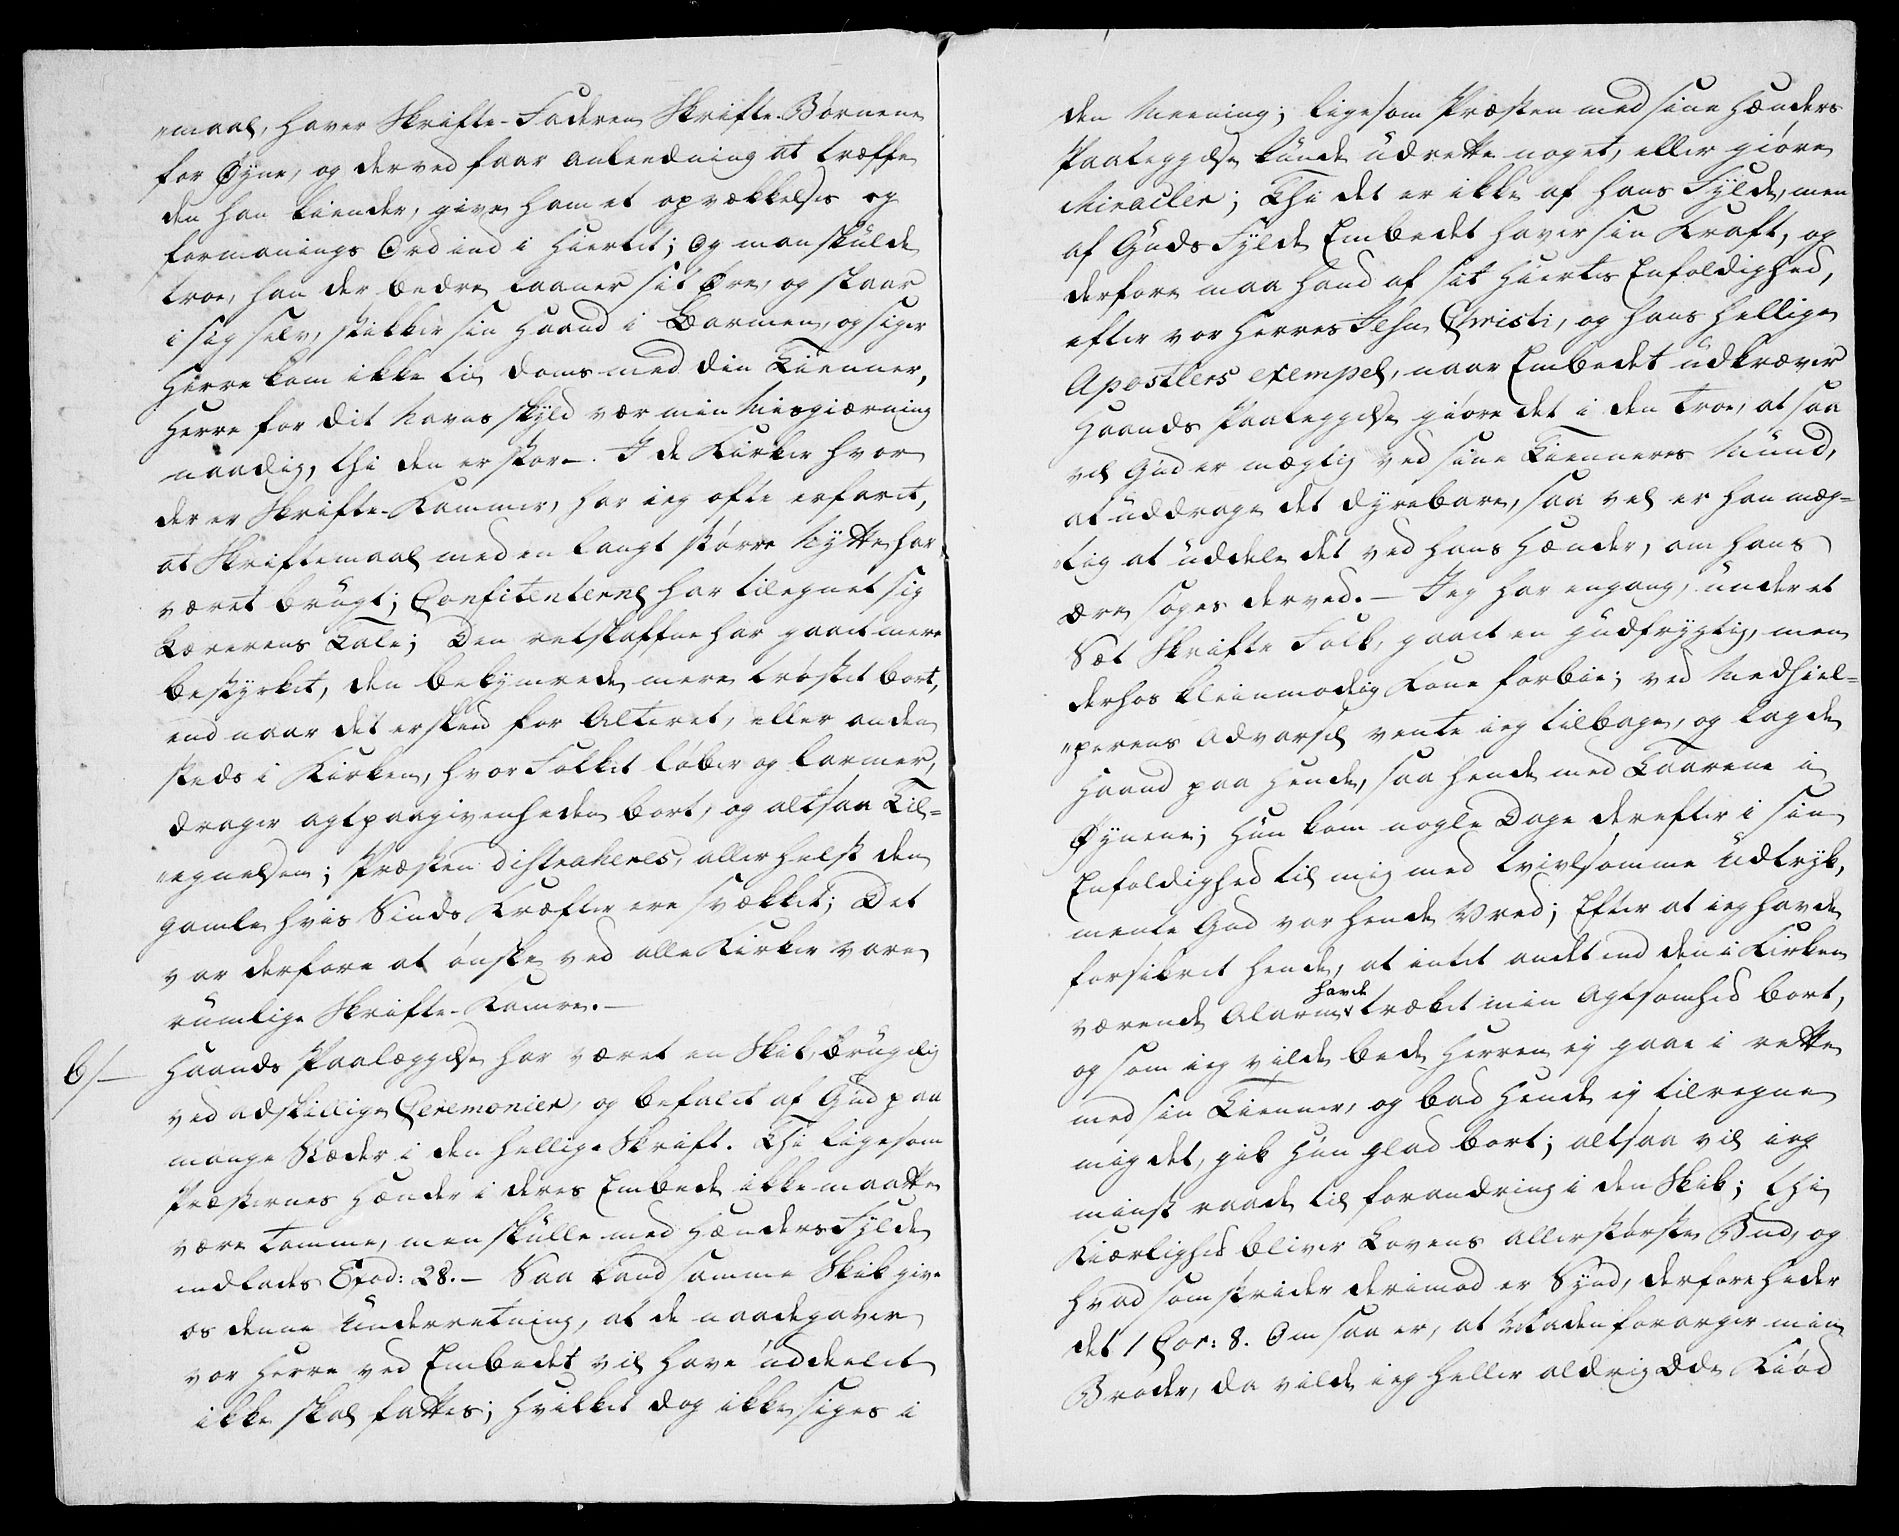 "maal, haver Skrifte-Faderen Skrifte-Børnene
for Øyne, og derved faar Anleedning at træffe
den han kiender, give ham et opvækkelses og
formanings Ord ind i Hiertet; Og man skulde
troe, han der bedre laaner sit Øre, og slaar
i sig selv, stikker sin Haand i Barmen, og siger
Herre kom ikke til doms med din Tienner,
Herre for dit Navns skyld vær min Misgierning
naadig, thi den er stor. I de Kirker hvor
der er Skrifte-Kammer, har ieg ofte erfaret,
at Skriftemaal med en langt større Nytte har
været brugt; Confitenterne har tilegnet sig
Lærerens Tale; Den retskaffne har gaaet mere
bestyrket, den bekymrede mere trøstet bort,
end naar det er skeed for Alteret, eller anden
steds i Kirken, hvor Folket løber og larmer,
drager agtpaagivenheden bort, og altsaa Til-
"egnelsen; Præsten distraheres, aller helst den
gamle hvis Sinds Kræfter ere svækket; Det
var derfore at ønske ved alle Kirker vare
rumlige Skrifte-Kamre.-
6/- Haands Paalæggelse har været en Skik, brugelig
ved adskillige Ceremonier, og befalet af Gud paa
mange Stæder i den hellige Skrift. Thi ligesom
Præsternes Hænder i deres Embede ikke maatte
være tomme, men skulle med Hænders Fylde
indlades Exod: 28.- Saa kand samme Skik give
os denne Underretning, at de naadegaver
vor Herre ved Embedet vil have uddeelet
ikke skal fattes; hvilket dog ikke siges i
den Meening; ligesom Præsten med sine Hænders
Paaleggelse kunde udrette noget, eller giøre
Miracler; Thi det er ikke af hans Fylde, men
af Guds Fylde Embedet haver sin Kraft, og
derfore maa hand af sit Hiertes Enfoldighed,
efter vor Herres Jesu Christi, og hans hellige
Apostlers exempel, naar Embedet udkræver
Haands Paaleggelse giøre det i den Troe, at saa
vel Gud er mægtig ved sine Tienneres Mund,
at uddrage det dyrebare, saa vel er han mæg-
"tig at uddele det ved hans Hænder, om hans
Ære søges derved.- Jeg har engang, under et
Sæt Skrifte Folk, gaaet en gudfrygtig, men
derhos kleinmodig Kone forbie; ved Medhiel-
"perens Advarsel vente ieg tilbage, og lagde
Haand paa hende, saa hende med Taarene i
Øynene; Hun kom nogle Dage derefter i sin
Enfoldighed til mig med tvivlsomme Udtryk,
mente Gud var hende Vred; Efter at ieg havde
forsikret hende, at intet andet end den i Kirken
værende Alarm havde trækket min Agtsomhed bort,
og som ieg vilde bede Herren ej gaae i rette
med sin Tienner, og bad hende ej tilregne
mig det, gik Hun glad bort; altsaa vil ieg
minst raade til forandring i den Skik; thi
Kiærlighed bliver Lovens allerstørste Bud, og
hvad som strider derimod er Synd, derfore heder
det 1 Cor: 8. Om saa er, at Maden forarger min
Broder, da vilde ieg heller aldrig æde Kiød